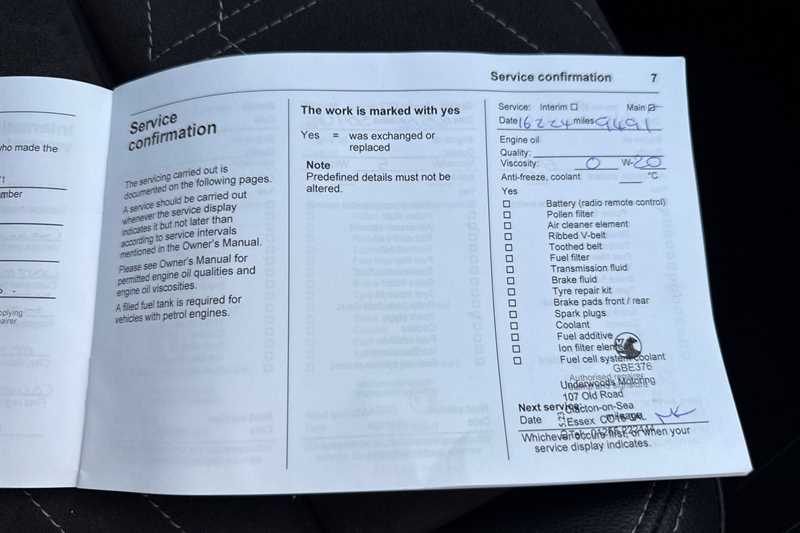 Service confirmation 7
ho made the
mber
plying
airer
Service
confirmation
The servicing carried out is
documented on the following pages.
A service should be carried out
whenever the service display
indicates it but not later than
according to service intervals
mentioned in the Owner's Manual.
Please see Owner's Manual for
permitted engine oil qualities and
engine oil viscosities.
A filled fuel tank is required for
vehicles with petrol engines.
The work is marked with yes
Yes = was exchanged or
replaced
Note
Predefined details must not be
altered.
Service: Interim Main
Date 16 2 24 miles 9491
Engine oil
Quality:
Viscosity: 0 W-20
Anti-freeze, coolant °C
Yes
Battery (radio remote control)
Pollen filter
Air cleaner element
Ribbed V-belt
Toothed belt
Fuel filter
Transmission fluid
Brake fluid
Tyre repair kit
Brake pads front / rear
Spark plugs
Coolant
Fuel additive
Ion filter element
Fuel cell system coolant
GBE376
Authorised repairer
Underwoods Motoring
107 Old Road
Next service: Clacton-on-Sea
Date Essex
Whichever occurs first, or when your
service display indicates.